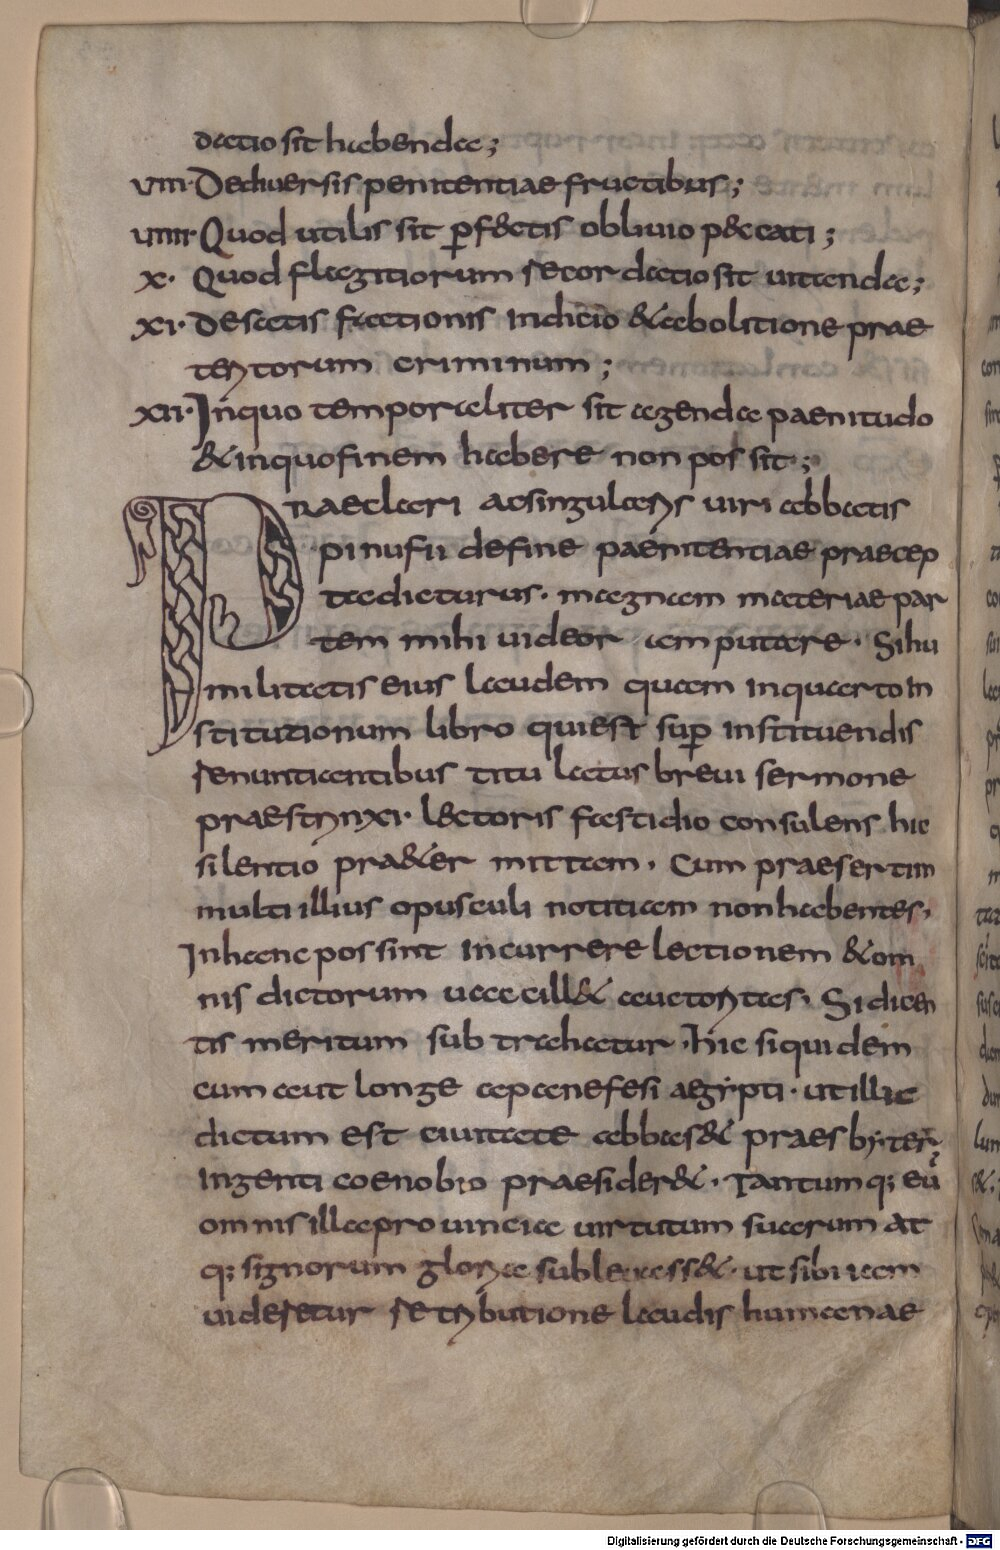 datio sit habenda;
VIII· De diuersis penitentiae fructibus;
VIIII· Quod utilis sit ꝑf&ctis obliuio p&ccati;
X· Quod flagitiorum recordatio sit uitanda;
XI· De satisfactionis indicio & abolitione prae
teritorum criminum;
XII· In quo temporaliter sit agenda paenitudo
& in quo finem habere non possit;
PRaeclari ac singularis uiri abbatis
pinufii de fine paenitentiae praecep
ta dicturus· magnam materiae par
tem mihi uideor amputare· Si hu
militatis eius laudem quam in quarto in
stitutionum libro qui est suꝑ instituendis
renuntiantibus titulatus breui sermone
praestrinxi· lectoris fastidio consulens hic
silentio pra&ermittam· Cum praesertim
multi illius opusculi notitiam non habentes·
In hanc possint incurrere lectionem & om
nis dictorum uacill& auctoritas· Si dicen
tis meritum subtrahatur· hic siquidem
cum aut longe a panefesi aegypti· ut illic
dictum est ciuitate abbas & praesbyter
Ingenti coenobio praesider&· Tantumq; eū
omnis illa prouincia uirtutum suarum at
q; signorum gloria subleuass&· ut sibi iam
uideretur retributione laudis humanae
Digitalisierung gefördert durch die Deutsche Forschungsgemeinschaft - DFG